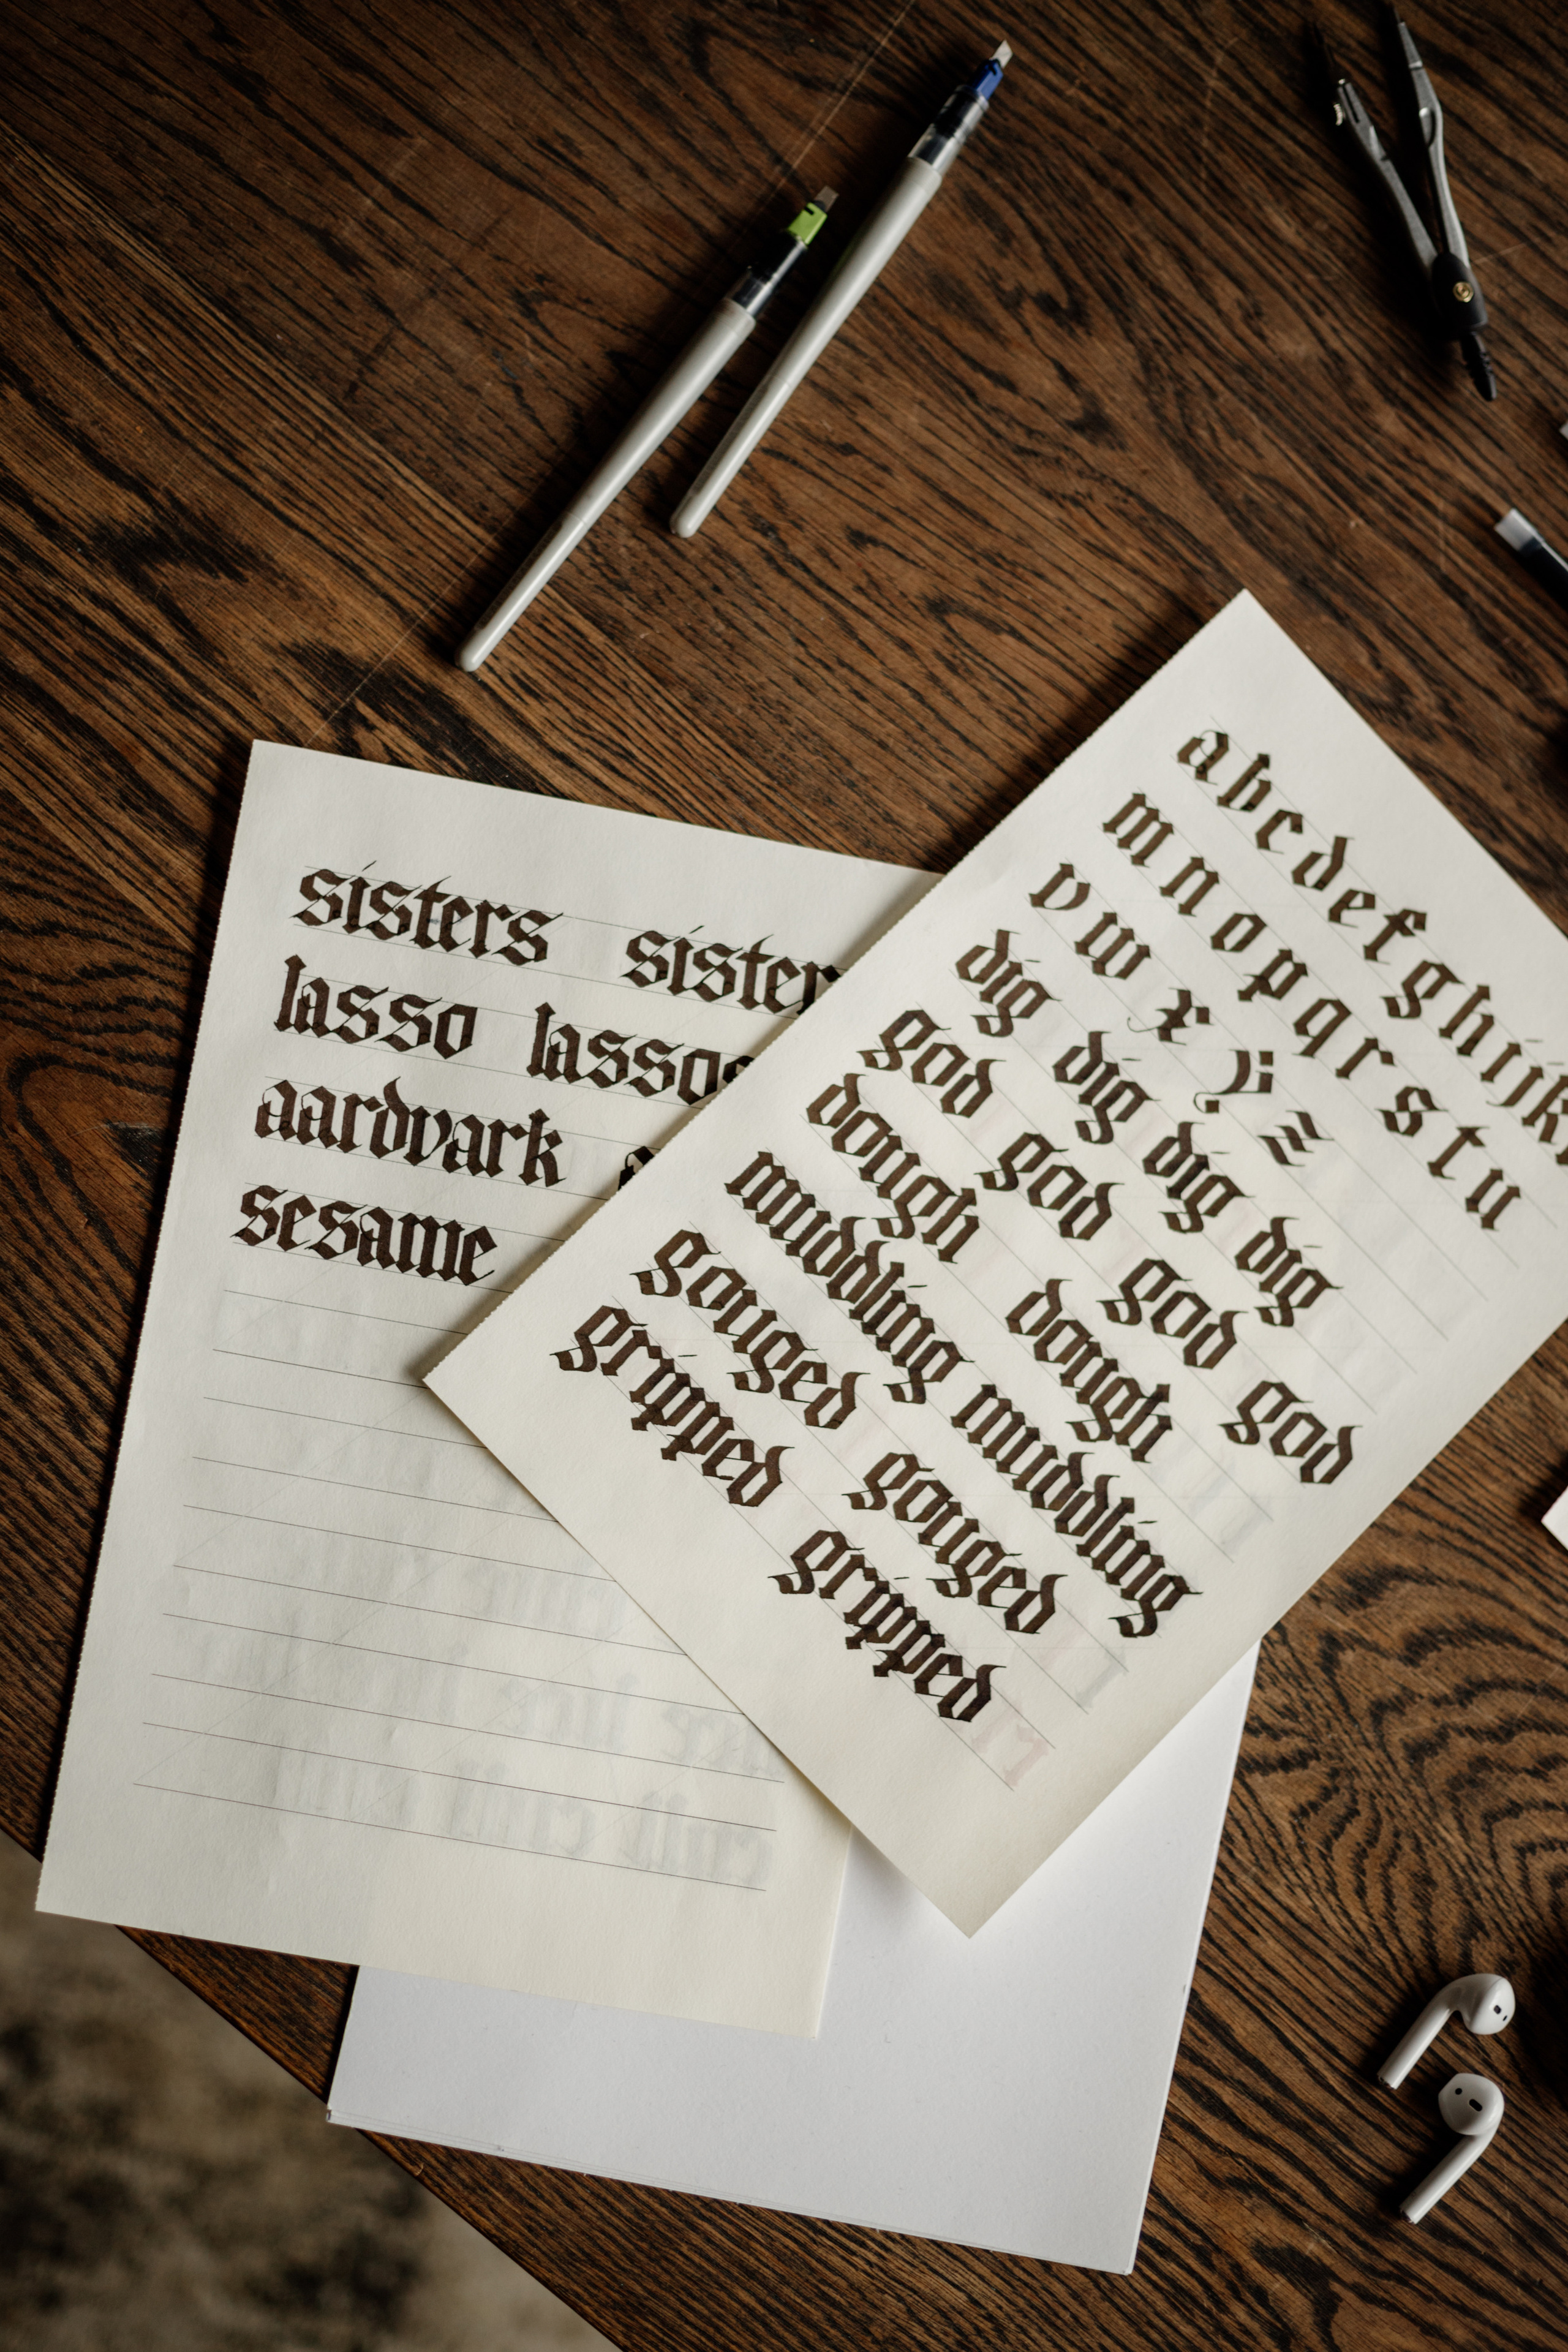 sisters sister
lasso lassos
aardvark
sesame
a b c d e f g h i j k
m n o p q r s t u
v w x
dig dig dig dig
god god god god
dough dough
muddling muddling
gouged gouged
gripped gripped